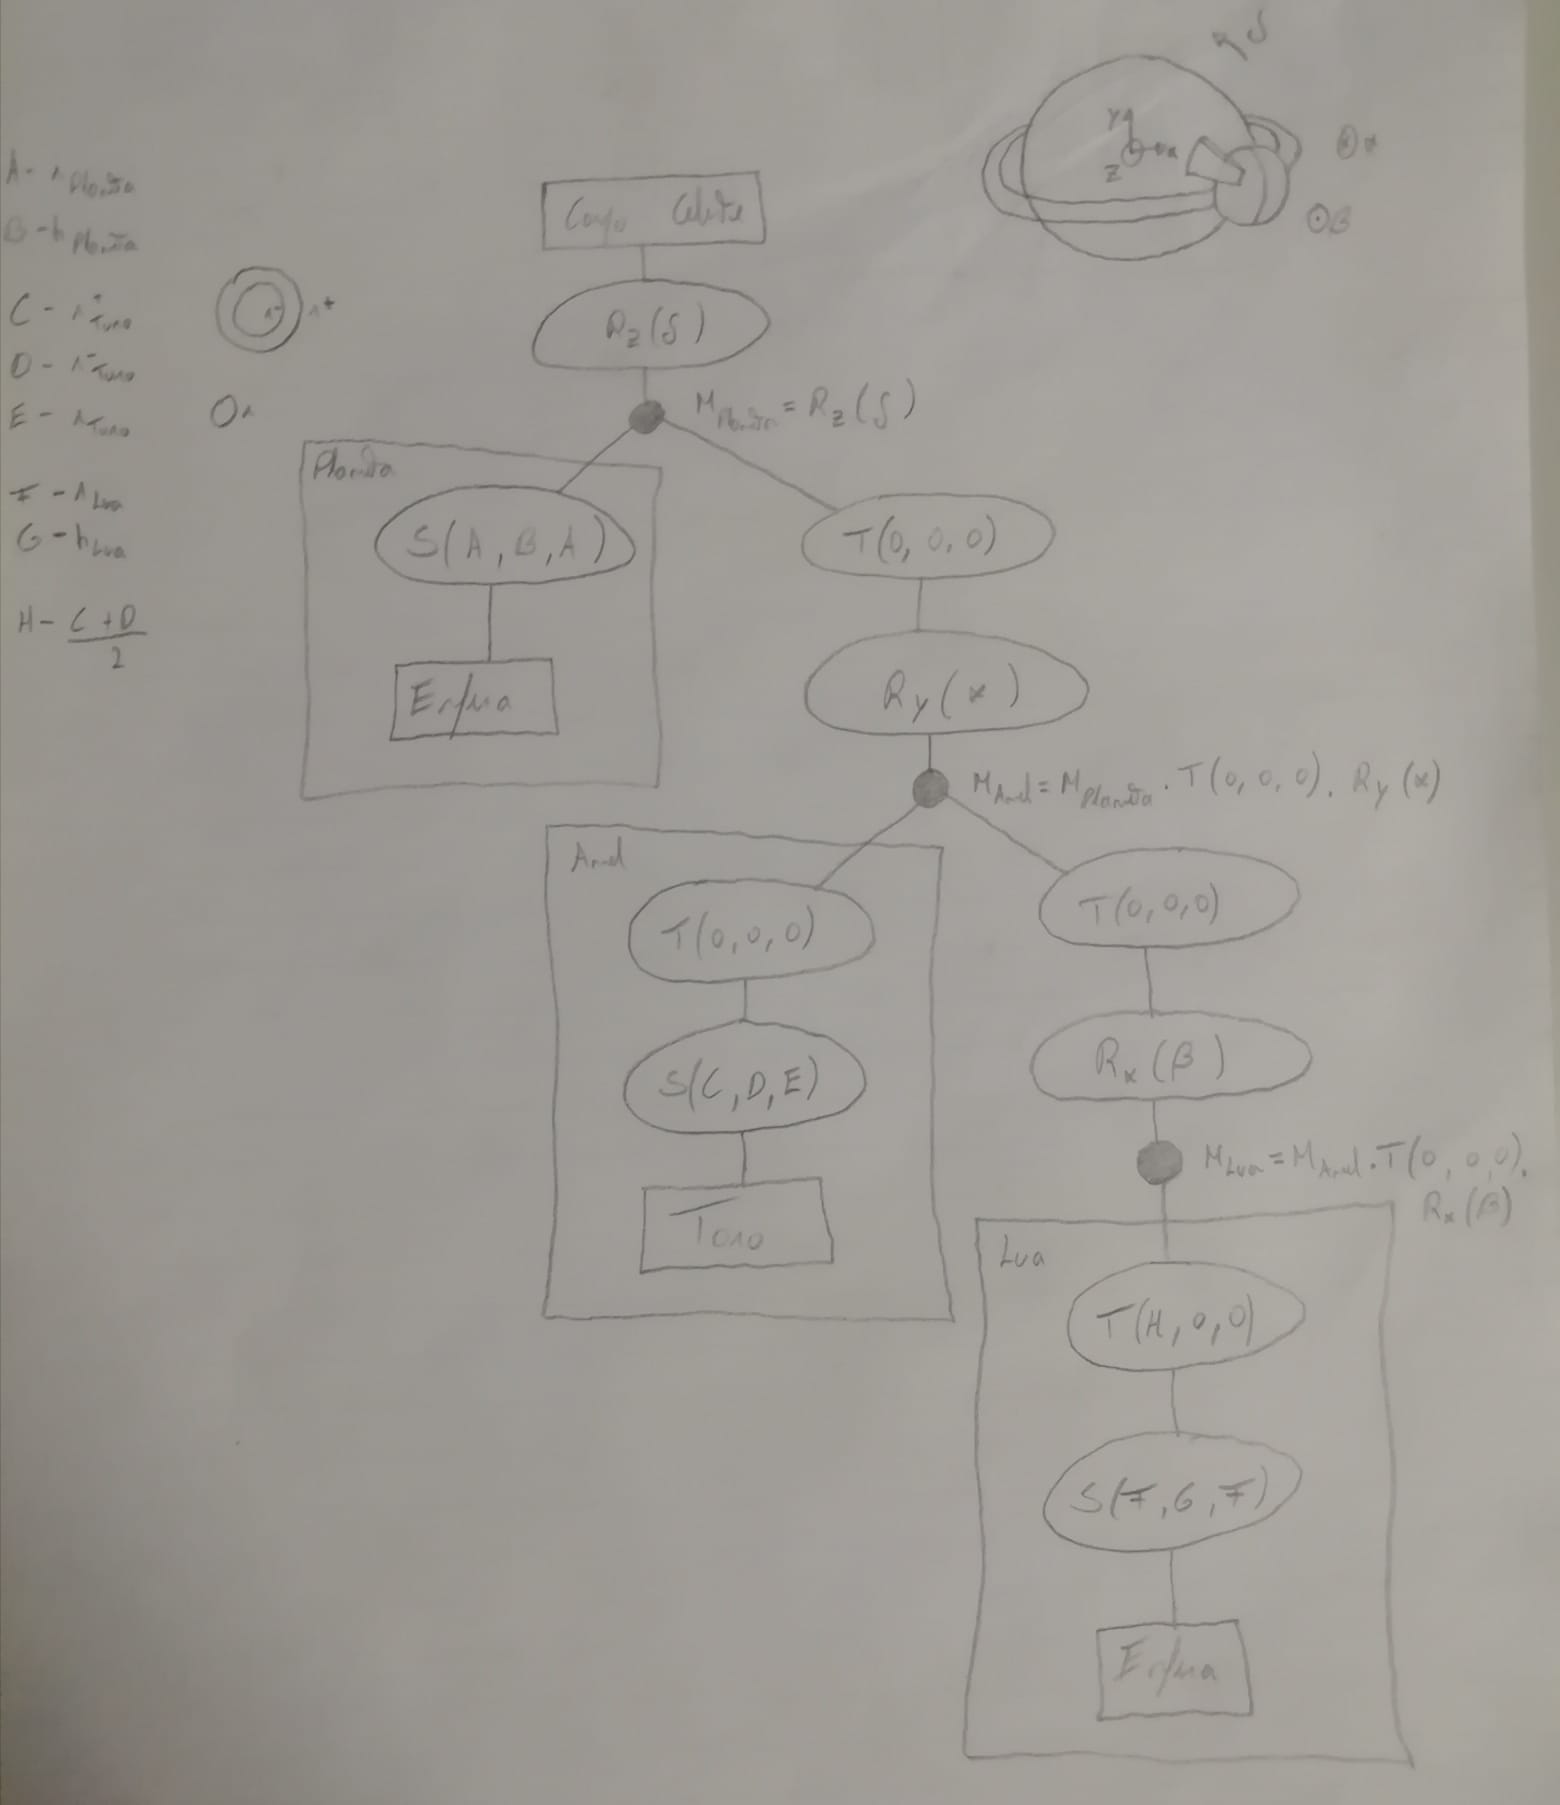 A - r Planeta
B - h Planeta
C - r⁺ Toro
D - r⁻ Toro
E - r Toro
F - r Lua
G - h Lua
H - C + D
2
r⁻ r⁺
r
Y
Z x
δ
α
β
Corpo Celeste
Rz(δ)
M Planeta = Rz(δ)
Planeta
S(A, B, A)
Esfera
T(0, 0, 0)
Ry(α)
M Anel = M Planeta . T(0, 0, 0) . Ry(α)
Anel
T(0, 0, 0)
S(C, D, E)
Toro
T(0,0,0)
Rx(β)
M Lua = M Anel . T(0, 0, 0).
Rx(β)
Lua
T(H, 0, 0)
S(F, G, F)
Esfera